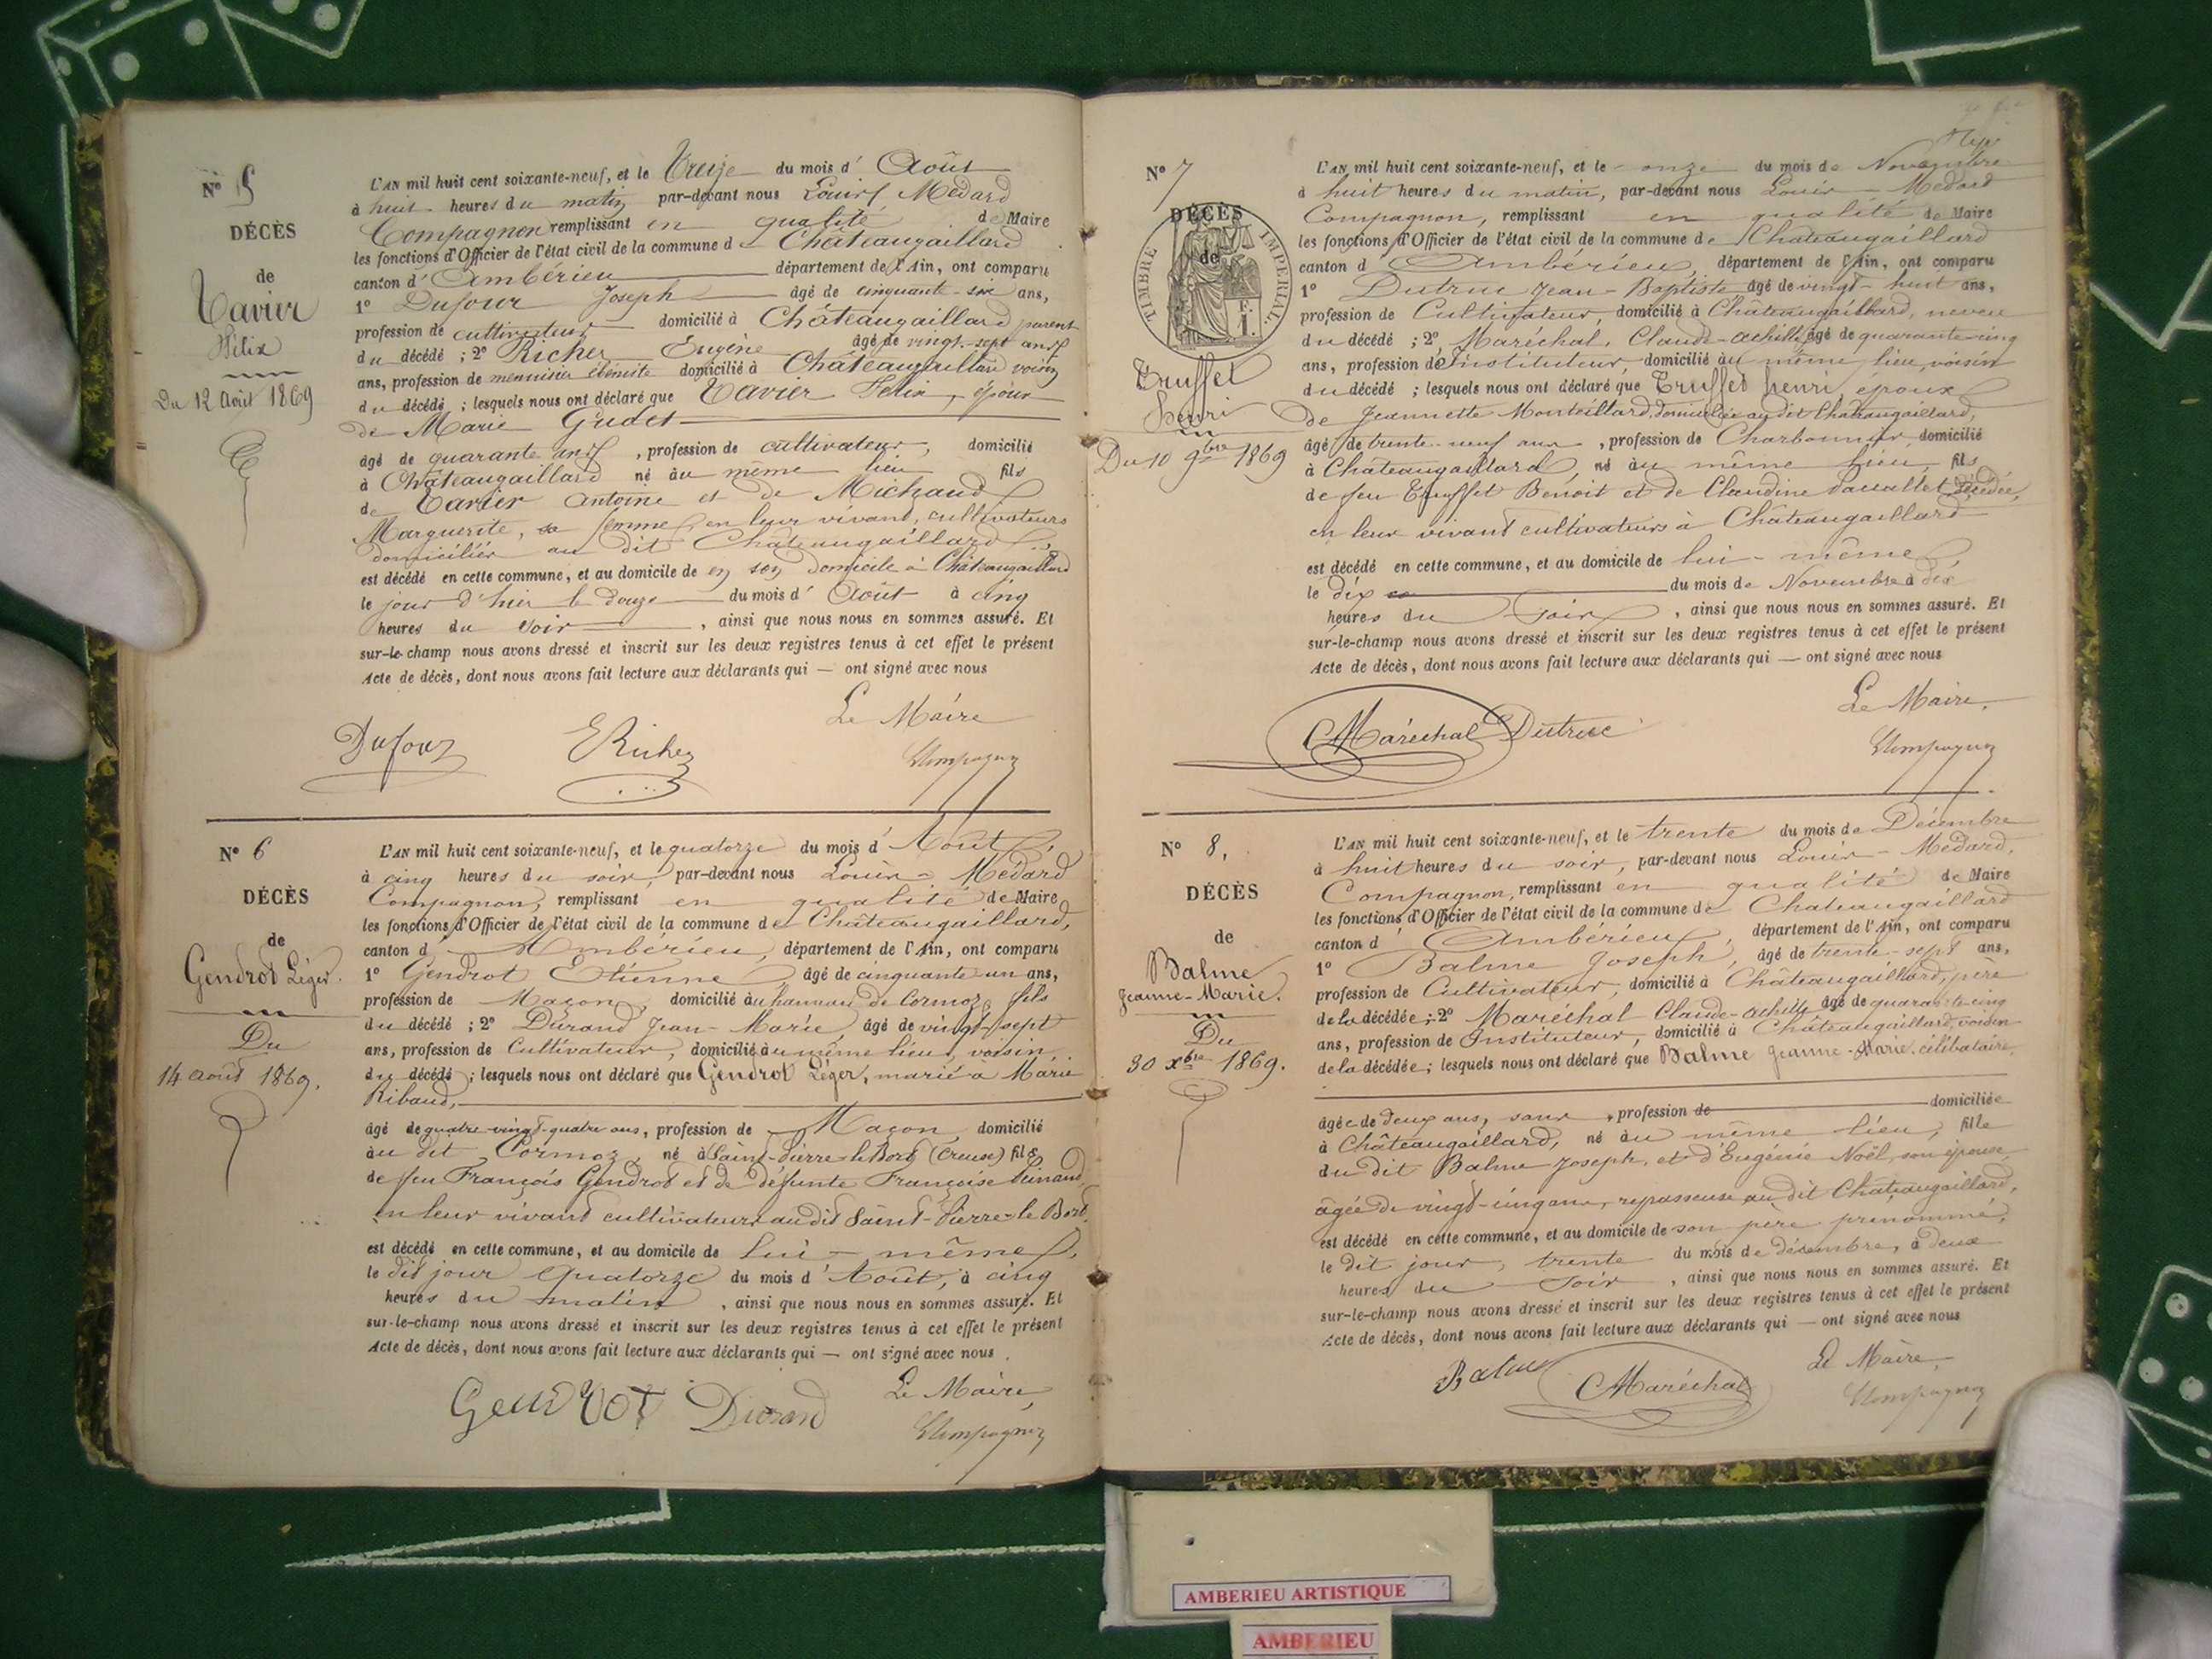 N° 5
DÉCÈS
de
Tavier
Félix
Du 12 Août 1869
L'AN mil huit cent soixante-neuf, et le Treize du mois d' Août
à huit heures du matin par-devant nous Louis Médard
Compagnon remplissant en qualité de Maire
les fonctions d'Officier de l'état civil de la commune de Châteaugaillard
canton d' Ambérieu département de l'Ain, ont comparu
1° Dufour Joseph âgé de cinquante-six ans,
profession de cultivateur domicilié à Châteaugaillard parent
du décédé ; 2° Richer Eugène âgé de vingt-sept ans
ans, profession de menuisier ébéniste domicilié à Châteaugaillard voisin
du décédé ; lesquels nous ont déclaré que Tavier Félix, époux
de Marie Gudet
âgé de quarante ans , profession de cultivateur, domicilié
à Châteaugaillard né au même lieu fils
de Tavier Antoine et de Michaud
Marguerite, sa femme en leur vivant, cultivateurs
domiciliés au dit Châteaugaillard
est décédé en cette commune, et au domicile de en son domicile à Châteaugaillard
le jour d'hier le douze du mois d' Août à cinq
heures du soir , ainsi que nous nous en sommes assuré. Et
sur-le-champ nous avons dressé et inscrit sur les deux registres tenus à cet effet le présent
Acte de décès, dont nous avons fait lecture aux déclarants qui — ont signé avec nous
Le Maire
Dufour ERicher LCompagnon
N° 6
DÉCÈS
de
Gendrot Léger.
Du
14 août 1869.
L'AN mil huit cent soixante-neuf, et le quatorze du mois d' Août,
à cinq heures du soir, par-devant nous Louis-Médard
Compagnon, remplissant en qualité de Maire
les fonctions d'Officier de l'état civil de la commune de Châteaugaillard,
canton d' Ambérieu, département de l'Ain, ont comparu
1° Gendrot Etienne, âgé de cinquante un ans,
profession de Maçon, domicilié au hameau de Cormoz, fils
du décédé ; 2° Durand Jean-Marie, âgé de vingt-sept
ans, profession de Cultivateur, domicilié au même lieu, voisin,
du décédé ; lesquels nous ont déclaré que Gendrot Léger, marié à Marie
Ribaud,
âgé de quatre-vingt-quatre ans, profession de Maçon domicilié
au dit Cormoz, né à Saint-Pierre-le-Bord (Creuse) fils
de feu François Gendrot et de défunte Françoise
en leur vivant cultivateurs audit Saint-Pierre-le Bord.
est décédé en cette commune, et au domicile de lui-même,
le dit jour quatorze du mois d'Août, à cinq
heures du matin , ainsi que nous nous en sommes assuré. Et
sur-le-champ nous avons dressé et inscrit sur les deux registres tenus à cet effet le présent
Acte de décès, dont nous avons fait lecture aux déclarants qui — ont signé avec nous
Le Maire,
Gendrot Durand LCompagnon
N° 7
DÉCÈS
de
TIMBRE IMPERIAL.
Truffet
henri
Du 10 9bre 1869
L'AN mil huit cent soixante-neuf, et le onze du mois de Novembre
à huit heures du matin, par-devant nous Louis-Médard
Compagnon, remplissant en qualité de Maire
les fonctions d'Officier de l'état civil de la commune de Châteaugaillard
canton d' Ambérieu, département de l'Ain, ont comparu
1° Dutruc Jean-Baptiste âgé de vingt-huit ans,
profession de Cultivateur, domicilié à Châteaugaillard, neveu
du décédé ; 2° Maréchal, Claude-achille, âgé de quarante-cinq
ans, profession d'Instituteur, domicilié au même lieu, voisin
du décédé ; lesquels nous ont déclaré que Truffet henri, époux
De Jeannette Monteillard, domiciliée au dit Châteaugaillard,
âgé de trente-neuf ans , profession de Charbonnier, domicilié
à Châteaugaillard, né au même lieu, fils
de feu Truffet Benoit et de Claudine décédée,
en leur vivant cultivateurs à Châteaugaillard
est décédé en cette commune, et au domicile de lui-même
le dix du mois de Novembre à dix
heures du soir , ainsi que nous nous en sommes assuré. Et
sur-le-champ nous avons dressé et inscrit sur les deux registres tenus à cet effet le présent
Acte de décès, dont nous avons fait lecture aux déclarants qui — ont signé avec nous
Le Maire,
CMaréchal Dutruc LCompagnon
N° 8,
DÉCÈS
de
Balme
Jeanne-Marie.
Du
30 xbre 1869.
L'AN mil huit cent soixante-neuf, et le trente du mois de Décembre
à huit heures du soir, par-devant nous Louis-Médard,
Compagnon, remplissant en qualité de Maire
les fonctions d'Officier de l'état civil de la commune de Châteaugaillard
canton d' Ambérieu, département de l'Ain, ont comparu
1° Balme Joseph, âgé de trente-sept ans,
profession de Cultivateur, domicilié à Châteaugaillard, père
de la décédée ; 2° Maréchal Claude-achille âgé de quarante-cinq
ans, profession de Instituteur, domicilié à Châteaugaillard, voisin
de la décédée ; lesquels nous ont déclaré que Balme Jeanne-Marie, célibataire,
âgée de deux ans, sans profession de domiciliée
à Châteaugaillard, né au même lieu, fille
du dit Balme Joseph, et d'Eugénie Noël, son épouse,
âgée de vingt-cinq ans, repasseuse au dit Châteaugaillard,
est décédé en cette commune, et au domicile de son père prénommé,
le dit jour, trente du mois de décembre, à deux
heures du soir , ainsi que nous nous en sommes assuré. Et
sur-le-champ nous avons dressé et inscrit sur les deux registres tenus à cet effet le présent
Acte de décès, dont nous avons fait lecture aux déclarants qui — ont signé avec nous
Le Maire,
Balme CMaréchal LCompagnon
AMBERIEU ARTISTIQUE
AMBERIEU